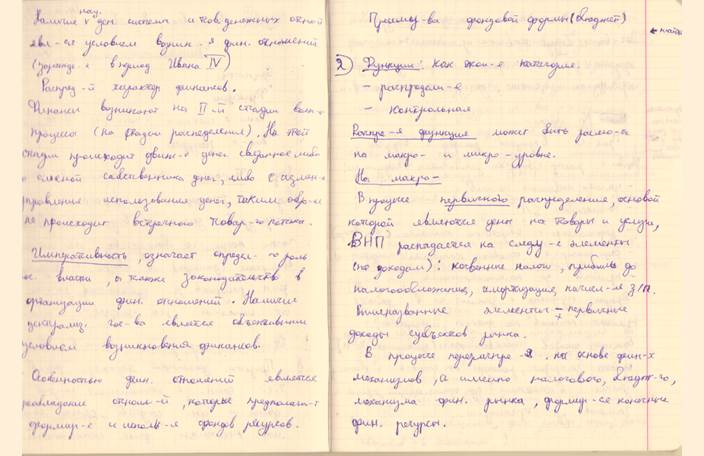 нач.
Наличие ден. системы и тов.-денежных отнош
явл-ся условием возник-я фин. отношений
(зарожд-е в период Ивана IV)
Распред-й характер финансов.
Финансы возникают на II-й стадии восп-
процесса (на стадии распределения). На этой
стадии происходит движ-е денег связанное либо
со сменой собственника денег, либо с измен-
правления использования денег, таким обр-м
не происходит встречного товар-го потока.
Императивность, означает определ-ю роль
ос. власти, а также законодательства в
организации фин. отношений. Наличие
централиз. гос-ва является объективным
условием возникновения финансов.
Особенностью фин. отношений является
отнош-й, которые предполаг-т
формир-е и использ-я фондов ресурсов.
Преимущ-ва фондовой формы (бюджет)
2 Функции: как экон-й категории.
- распредели-е
- контрольная
Распре-я функция может быть рассмо-а
на макро- и микро-уровне.
На макро-
В процессе первичного распределения, основой
которой являются цены на товары и услуги,
ВНП распадается на следу-е элементы
(по доходам): косвенные налоги, прибыль до
налогообложения, амортизация, начисл-я з/п.
Вышеназванные элементы - первичные
доходы субъектов рынка.
В процессе перераспре-я на основе фин-х
механизмов, а именно налогового, бюдж-го,
механизма фин. рынка, формир-ся конечные
фин. ресурсы.